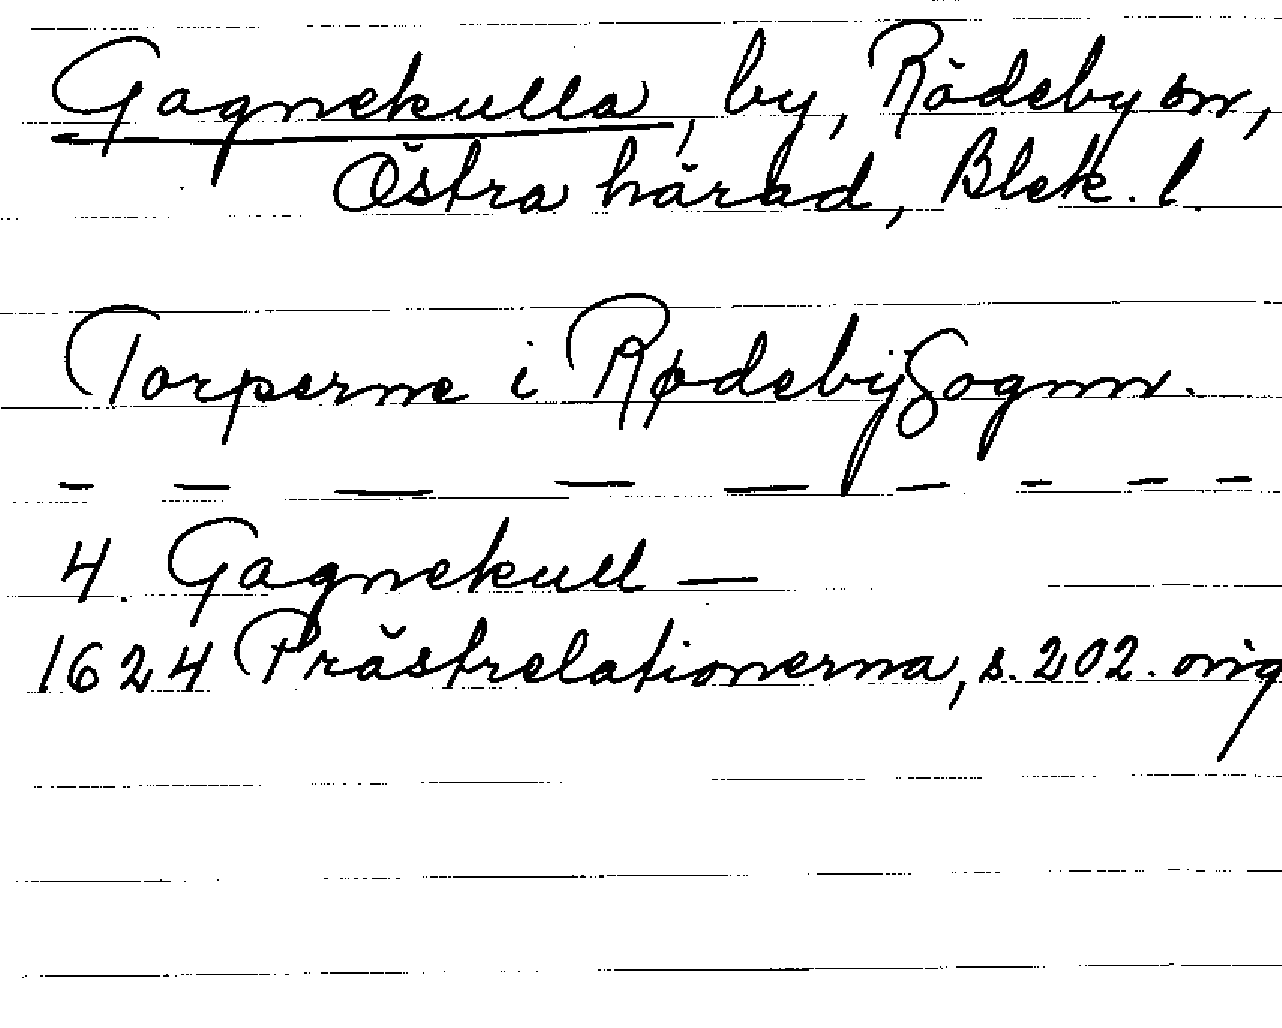 Gagnekulla, by, Rödeby sn,
Östra härad, Blek. l.
Torperne i Rødebÿ Sognn.
— — — — — — — — —
4. Gagnekull —
1624 Prästrelationerna, s. 202. orig